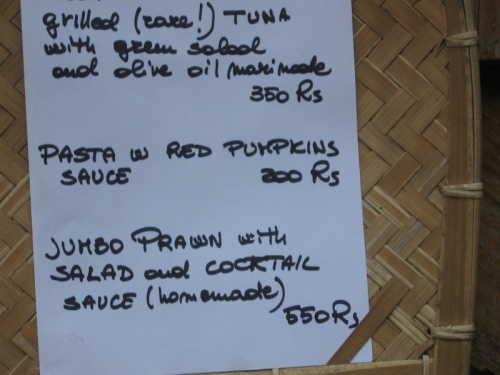 grilled (rare!) TUNA
with green salad
and olive oil marinade
350 Rs
PASTA w RED PUMPKINS
SAUCE 200 Rs
JUMBO PRAWN with
SALAD and COCKTAIL
SAUCE (homemade)
550 Rs